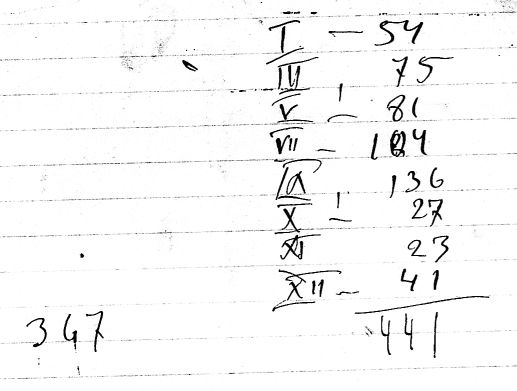 I – 54
III 75
V – 81
VII –
IX 136
X – 27
XI 23
XII – 41
441
347